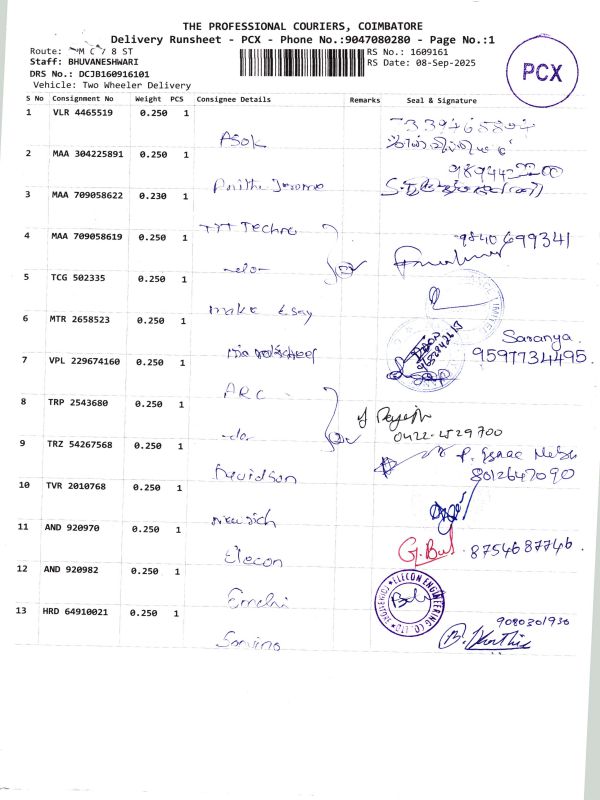 THE PROFESSIONAL COURIERS, COIMBATORE
Delivery Runsheet - PCX - Phone No.:9047080280 - Page No.:1
Route: M C 7 8 ST
RS No.: 1609161
Staff: BHUVANESHWARI
RS Date: 08-Sep-2025
DRS No.: DCJB160916101
Vehicle: Two Wheeler Delivery
PCX
S No Consignment No Weight PCS Consignee Details Remarks Seal & Signature
1 VLR 4465519 0.250 1
Asok
2 MAA 304225891 0.250 1
3 MAA 709058622 0.230 1
TTT Techno
4 MAA 709058619 0.250 1
9840699341
-do-
5 TCG 502335 0.250 1
make Esay
6 MTR 2658523 0.250 1
Saranya.
9597734495.
7 VPL 229674160 0.250 1
ARC
8 TRP 2543680 0.250 1
Rajesh
0422-2529700
-do-
9 TRZ 54267568 0.250 1
P. Isaac
8012647090
Davidson
10 TVR 2010768 0.250 1
11 AND 920970 0.250 1
G. Bul 8754687746.
Elecon
12 AND 920982 0.250 1
ELECON ENGINEERING CO. LTD
13 HRD 64910021 0.250 1
9080301930
B. Karthik